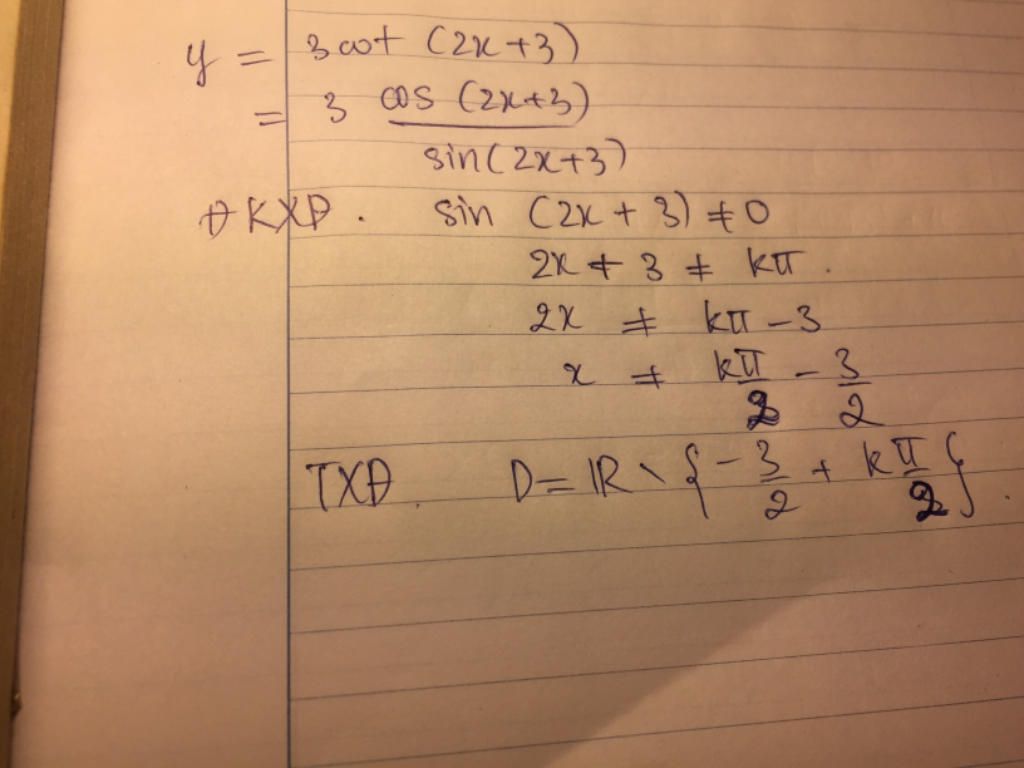 y = 3 cot (2x+3)
= 3 cos (2x+3) / sin(2x+3)
ĐKXĐ. sin (2x + 3) ≠ 0
2x + 3 ≠ kπ.
2x ≠ kπ - 3
x ≠ kπ/2 - 3/2
TXĐ. D = ℝ \ { - 3/2 + k π/2 }.